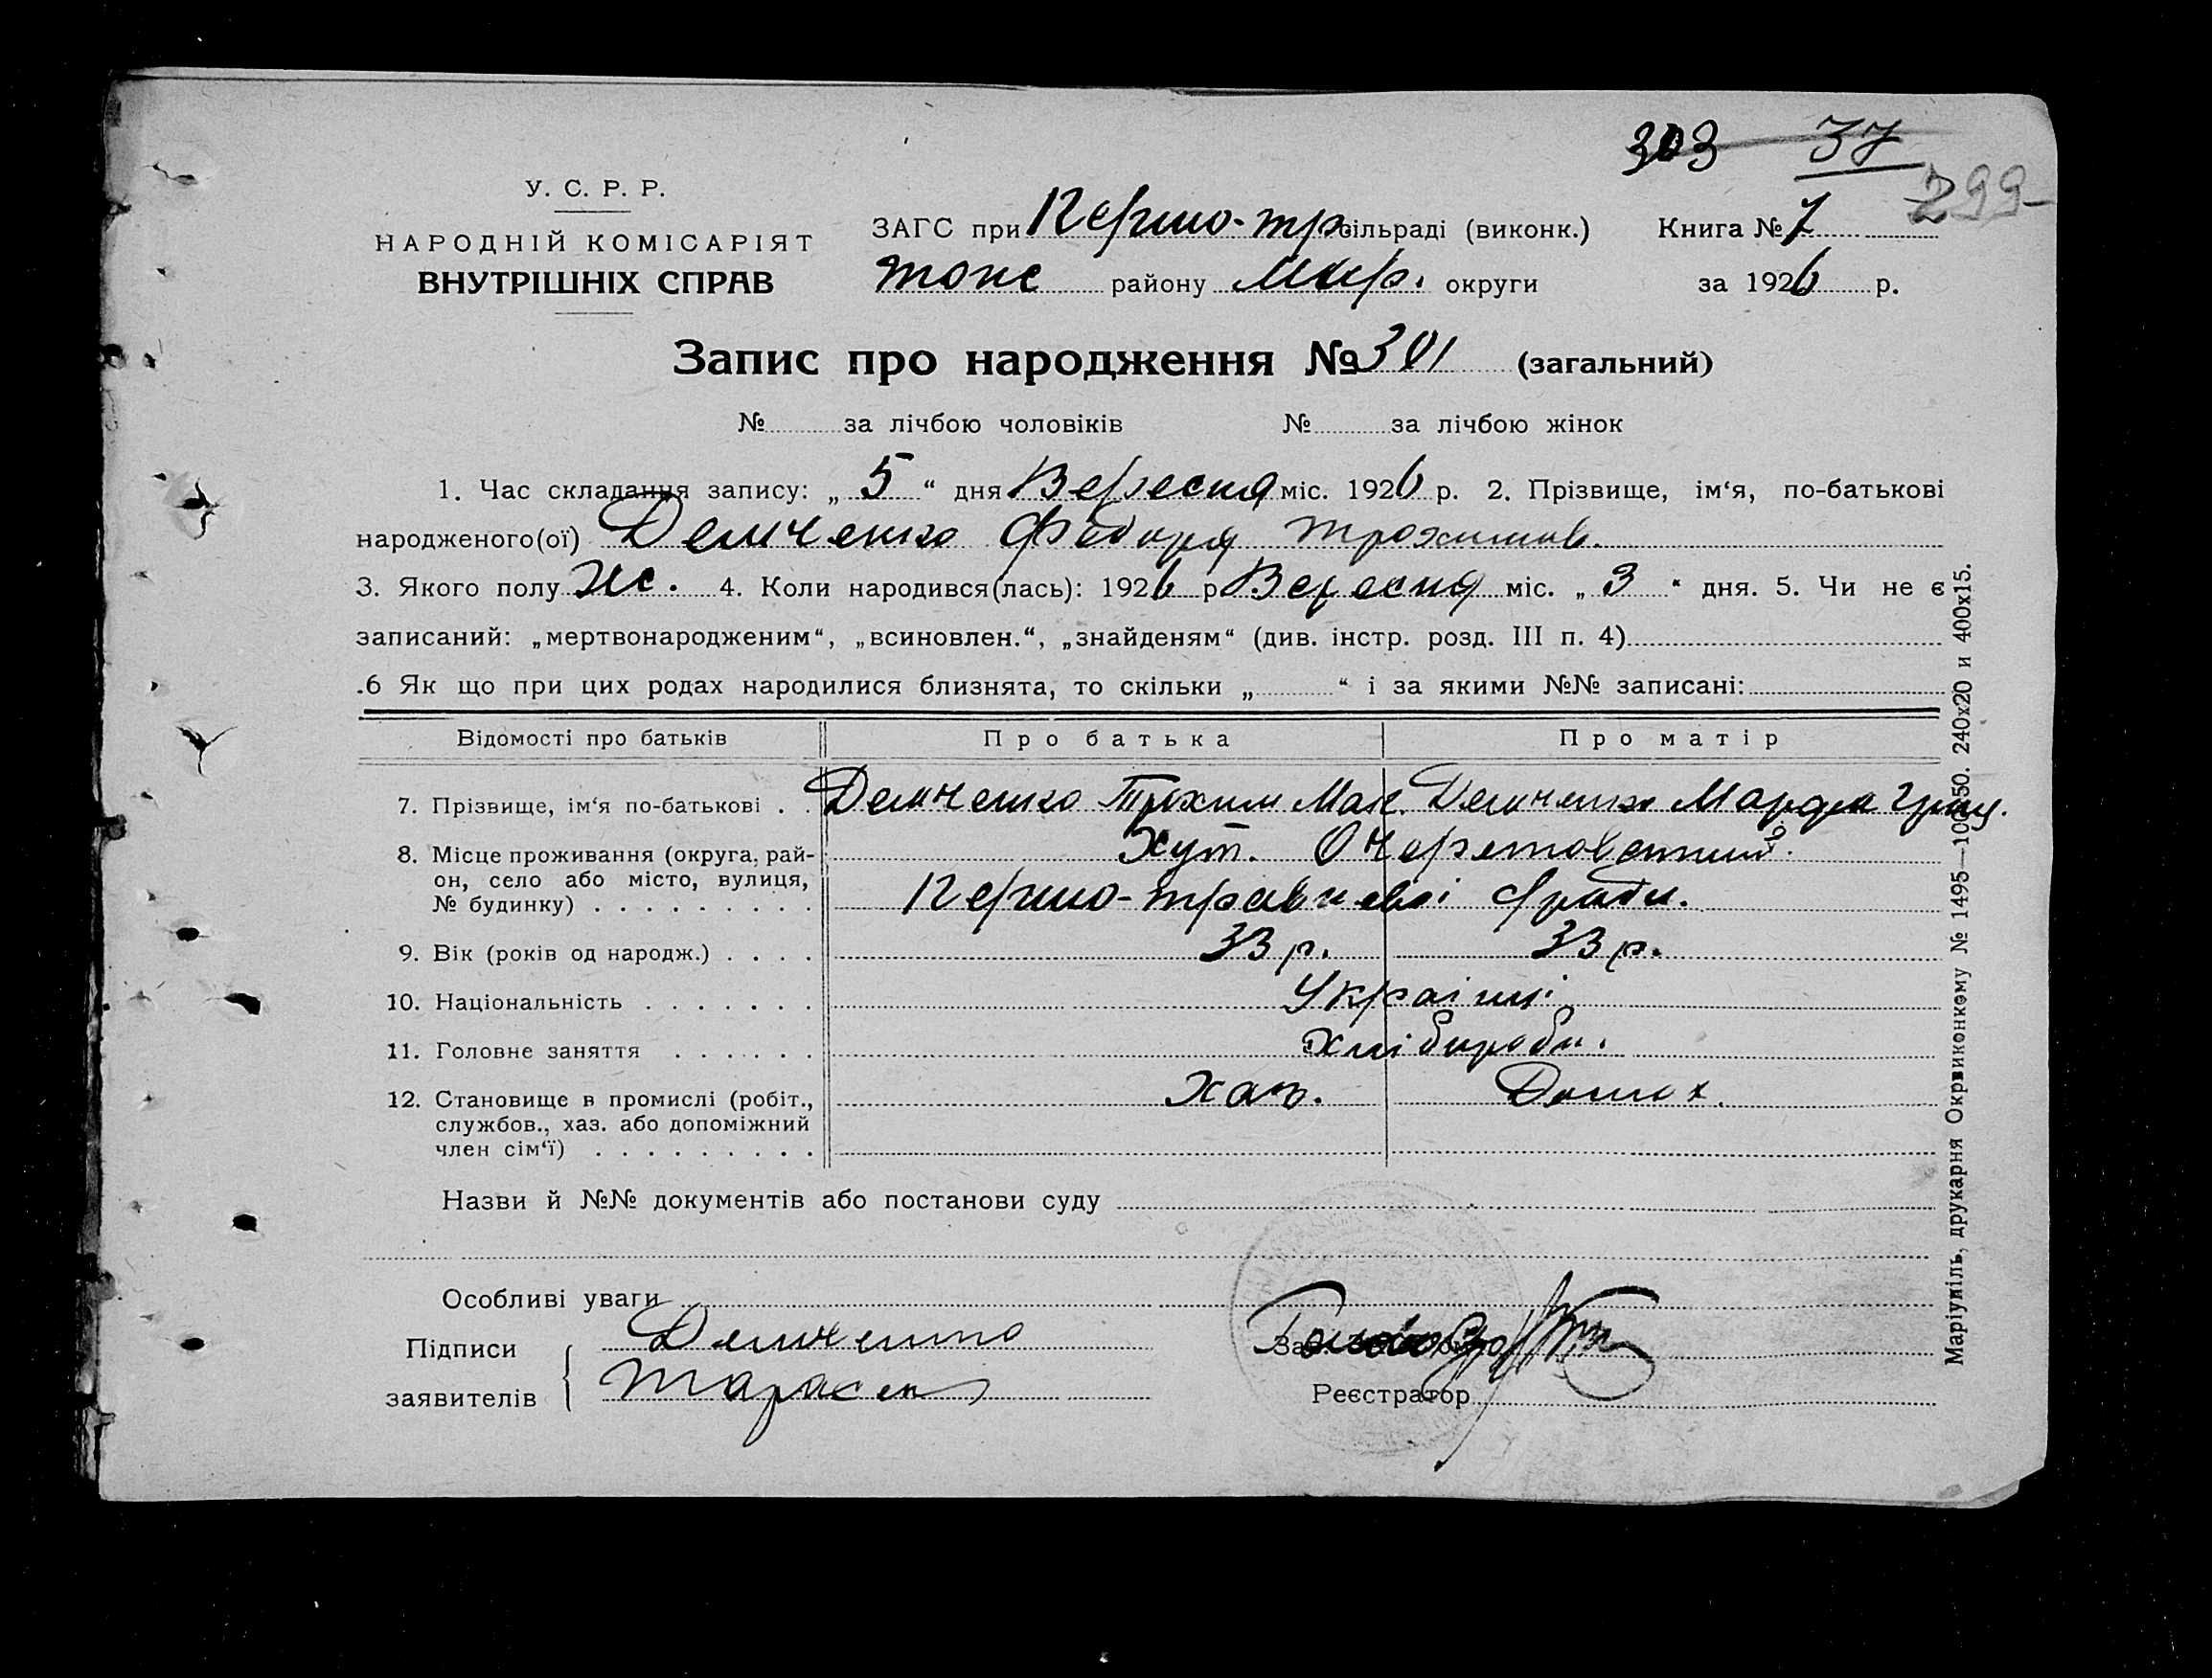 303 37
299
У. С. Р. Р.
НАРОДНІЙ КОМІСАРІЯТ
ВНУТРІШНІХ СПРАВ
ЗАГС при Першо-тр. сільраді (виконк.) Книга № 7
району Мар. округи за 1926 р.
Запис про народження № 301 (загальний)
№ за лічбою чоловіків № за лічбою жінок
1. Час складання запису: „ 5 “ дня Вересня міс. 1926 р. 2. Прізвище, ім‘я, по-батькові
народженого(ої) Демченко Трохимів.
3. Якого полу ж. 4. Коли народився(лась): 1926 р Вересня міс. „ 3 “ дня. 5. Чи не є
записаний: „мертвонародженим“, „всиновлен.“, „знайденям“ (див. інстр. розд. III п. 4)
.6 Як що при цих родах народилися близнята, то скільки „ “ і за якими №№ записані:
Відомості про батьків Про батька Про матір
7. Прізвище, ім‘я по-батькові . . Демченко Трохим Мак. Демченко Марфа Григ.
8. Місце проживання (округа, рай-
он, село або місто, вулиця,
№ будинку) . . . . . . . . .
Хут. Очеретоватий.
Першо-травневої с/ради.
9. Вік (років од народж.) . . . . 33 р. 33 р.
10. Національність . . . . . . . Українці
11. Головне заняття . . . . . . хлібороби.
12. Становище в промислі (робіт.,
службов., хаз. або допоміжний
член сім‘ї) . . . . . . . . .
хаз. Домох.
Назви й №№ документів або постанови суду
Особливі уваги
Підписи Демченко
заявителів Тарасен
Реєстратор
Маріупіль, друкарня Окрвиконкому № 1495—100/50. 240х20 и 400х15.